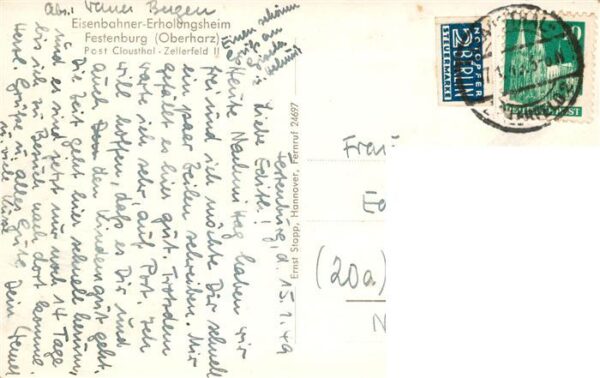 Abs.: Werner Bergen
Eisenbahner-Erholungsheim
Festenburg (Oberharz)
Post Clausthal-Zellerfeld II
Einen schönen
Gruß an
Kinder
u. Helmut
Festenburg, d. 15.1.49
Liebe Edith!
Heute Nachmittag haben wir
frei und ich möchte Dir schnell
ein paar Zeilen schreiben. Mir
gefällt es hier gut. Trotzdem
warte ich sehr auf Post. Ich
will hoffen, daß es Dir und
auch den Kindern gut geht.
Die Zeit geht hier schnell herum,
und es sind jetzt nur noch 14 Tage
bis ich zu Besuch nach dort komme.
Herzl. Grüße u. alles Gute Dein Werner
u. viele Küsse
Ernst Stapp, Hannover, Fernruf 24697
NOTOPFER
2 BERLIN
STEUERMARKE
BERLIN
POST
Frau
(20a)
N